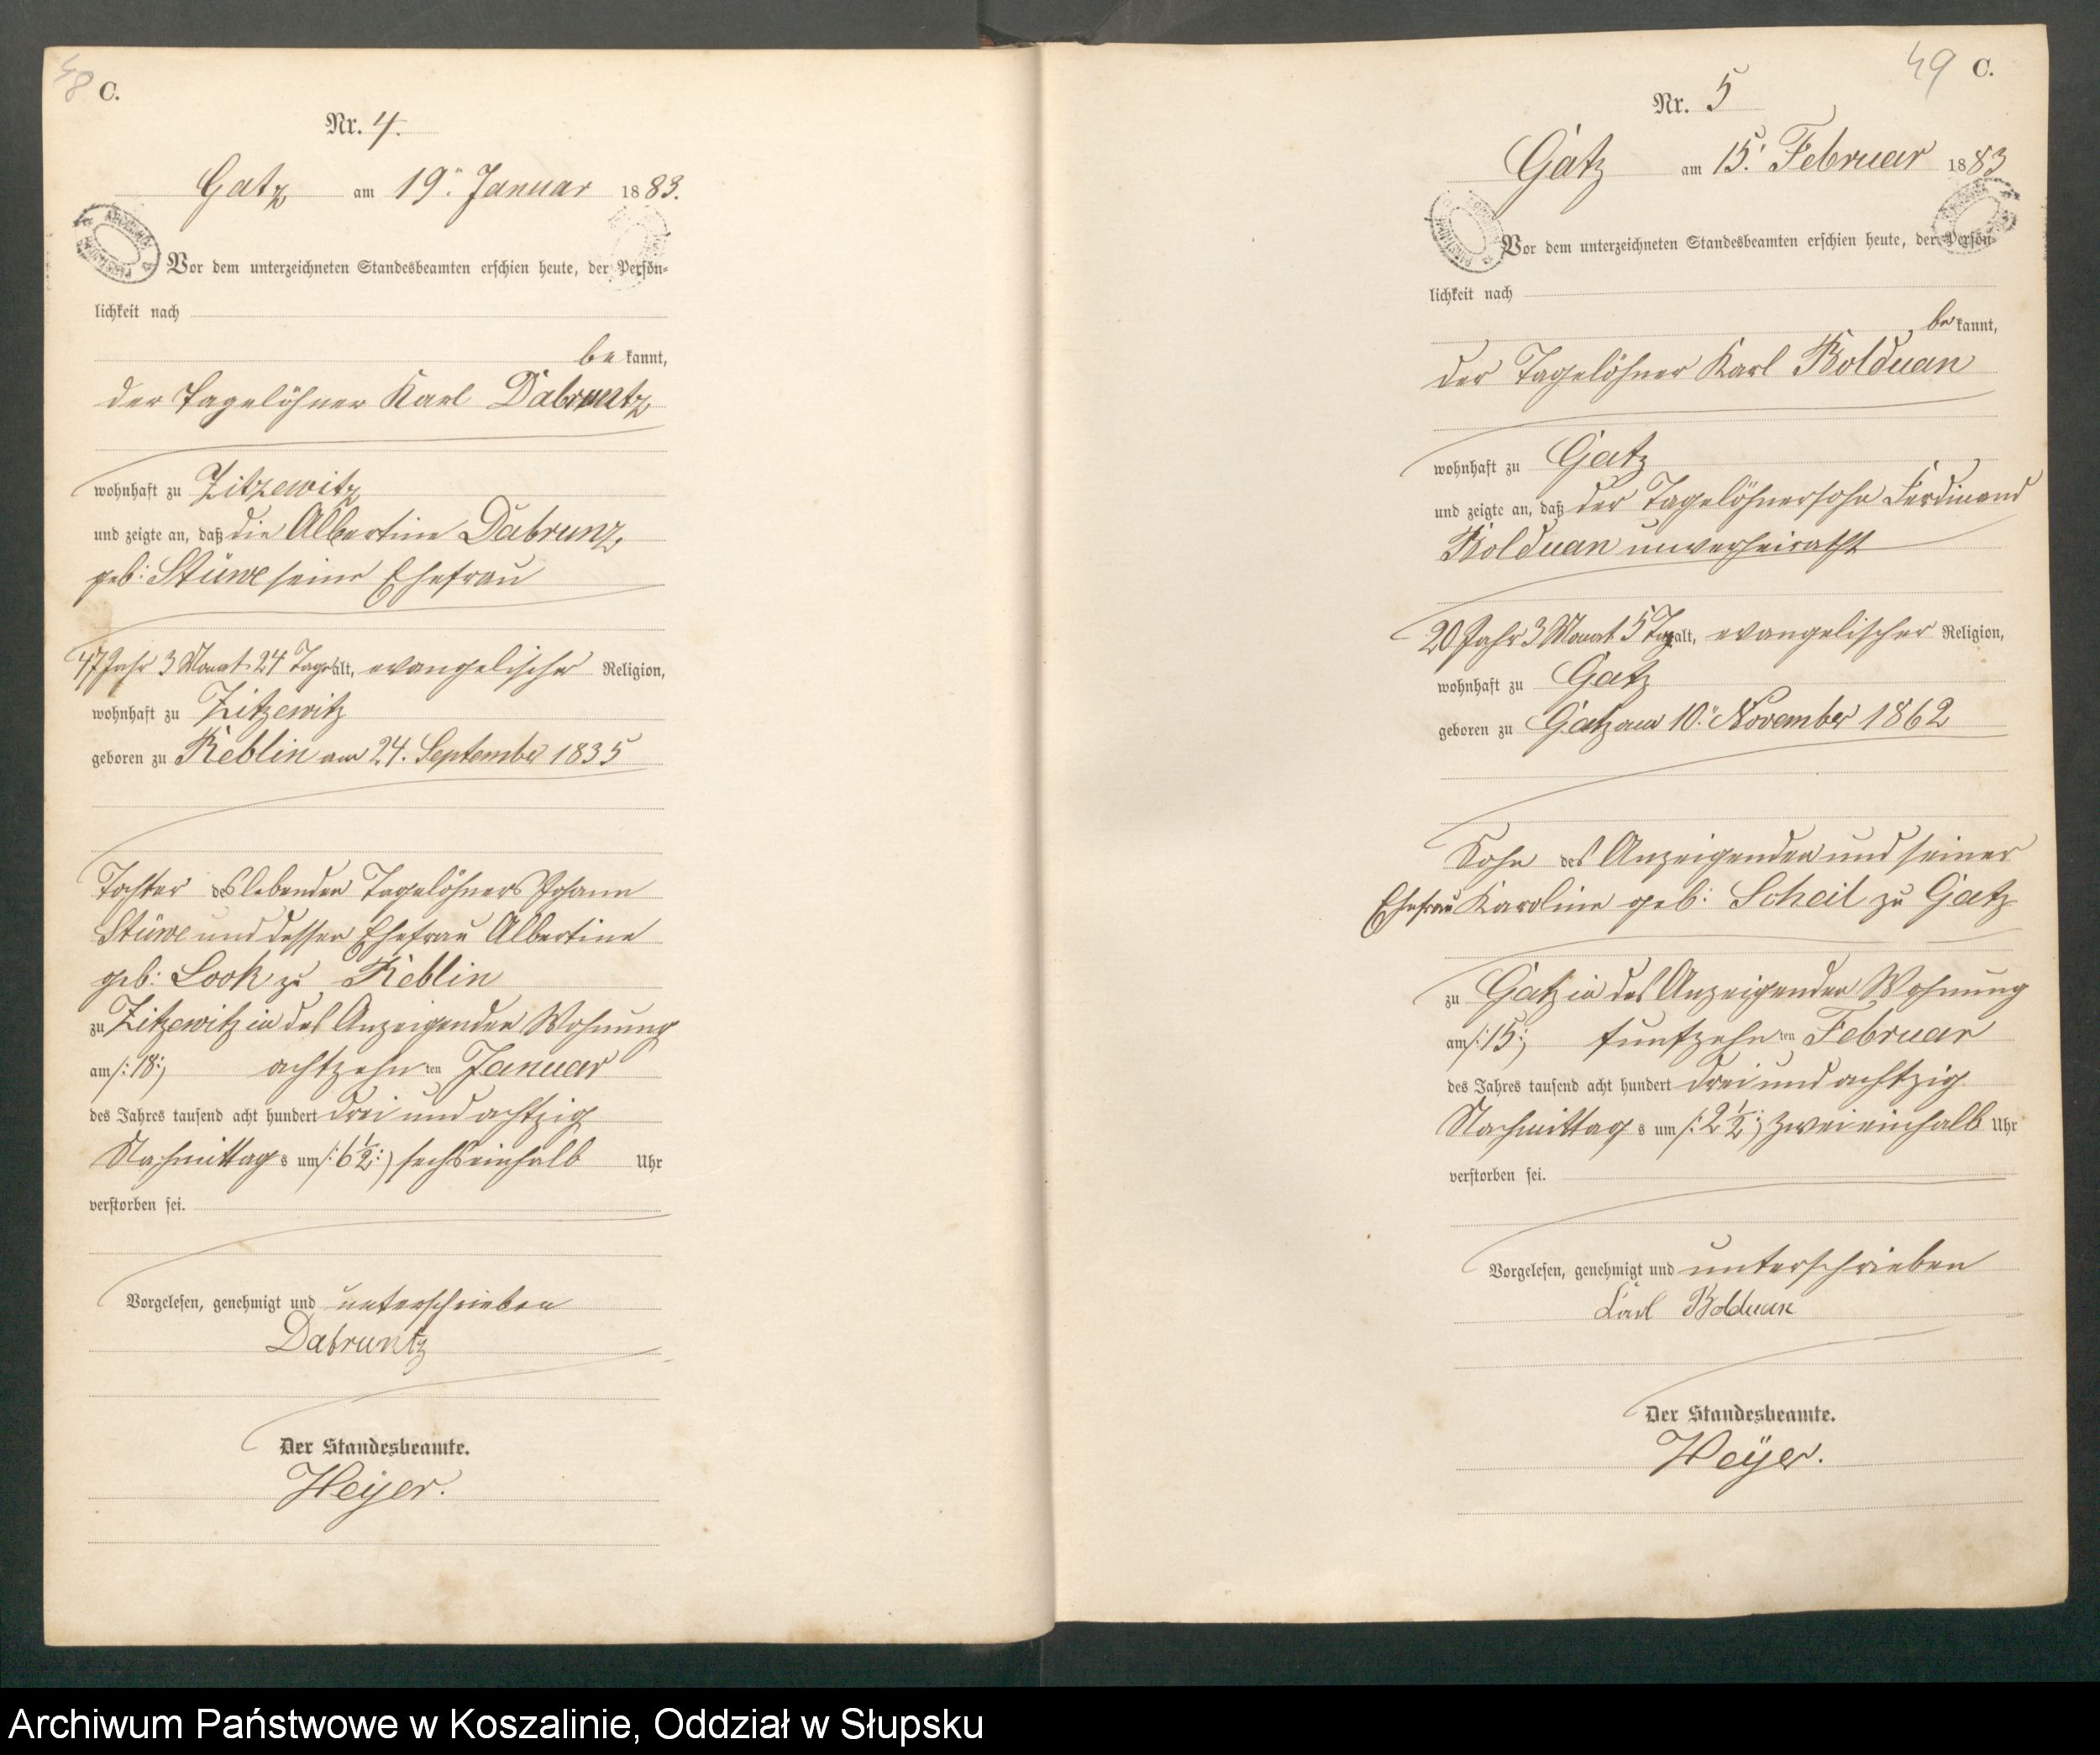 48 C.
Nr. 4.
Gatz am 19ⁿ Januar 1883.
Vor dem unterzeichneten Standesbeamten erschien heute, der Persön-
lichkeit nach
bekannt,
der Tagelöhner Karl Dabruntz
wohnhaft zu Zitzewitz
und zeigte an, daß die Albertine Dabrunz
geb: Stüwe seine Ehefrau
47 Jahr 3 Monat 24 Tage alt, evangelischer Religion,
wohnhaft zu Zitzewitz
geboren zu Reblin am 24. September 1835
Tochter des lebenden Tagelöhners Johann
Stüwe und dessen Ehefrau Albertine
geb: Look zu Reblin
zu Zitzewitz in des Anzeigenden Wohnung
am /: 18 :/ achtzehnten Januar
des Jahres tausend acht hundert drei und achtzig
Nachmittags um /: 6½ :/ sechseinhalb Uhr
verstorben sei.
Vorgelesen, genehmigt und unterschrieben
Dabruntz
Der Standesbeamte.
Heyer.
49 C.
Nr. 5
Gatz am 15. Februar 1883
Vor dem unterzeichneten Standesbeamten erschien heute, der Persön-
lichkeit nach
bekannt,
der Tagelöhner Karl Bolduan
wohnhaft zu Gatz
und zeigte an, daß der Tagelöhnersohn Ferdinand
Bolduan unverheirathet
20 Jahr 3 Monat 5 Tag alt, evangelischer Religion,
wohnhaft zu Gatz
geboren zu Gatz am 10. November 1862
Sohn des Anzeigenden und seiner
Ehefrau Karoline geb: Scheil zu Gatz
zu Gatz in des Anzeigenden Wohnung
am /: 15 :/ funfzehnten Februar
des Jahres tausend acht hundert drei und achtzig
Nachmittags um /: 2½ :/ zweieinhalb Uhr
verstorben sei.
Vorgelesen, genehmigt und unterschrieben
Karl Bolduan
Der Standesbeamte.
Heÿer.
Archiwum Państwowe w Koszalinie, Oddział w Słupsku